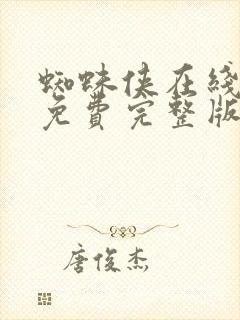 蜘蛛侠在线
免費完整版
唐俊杰